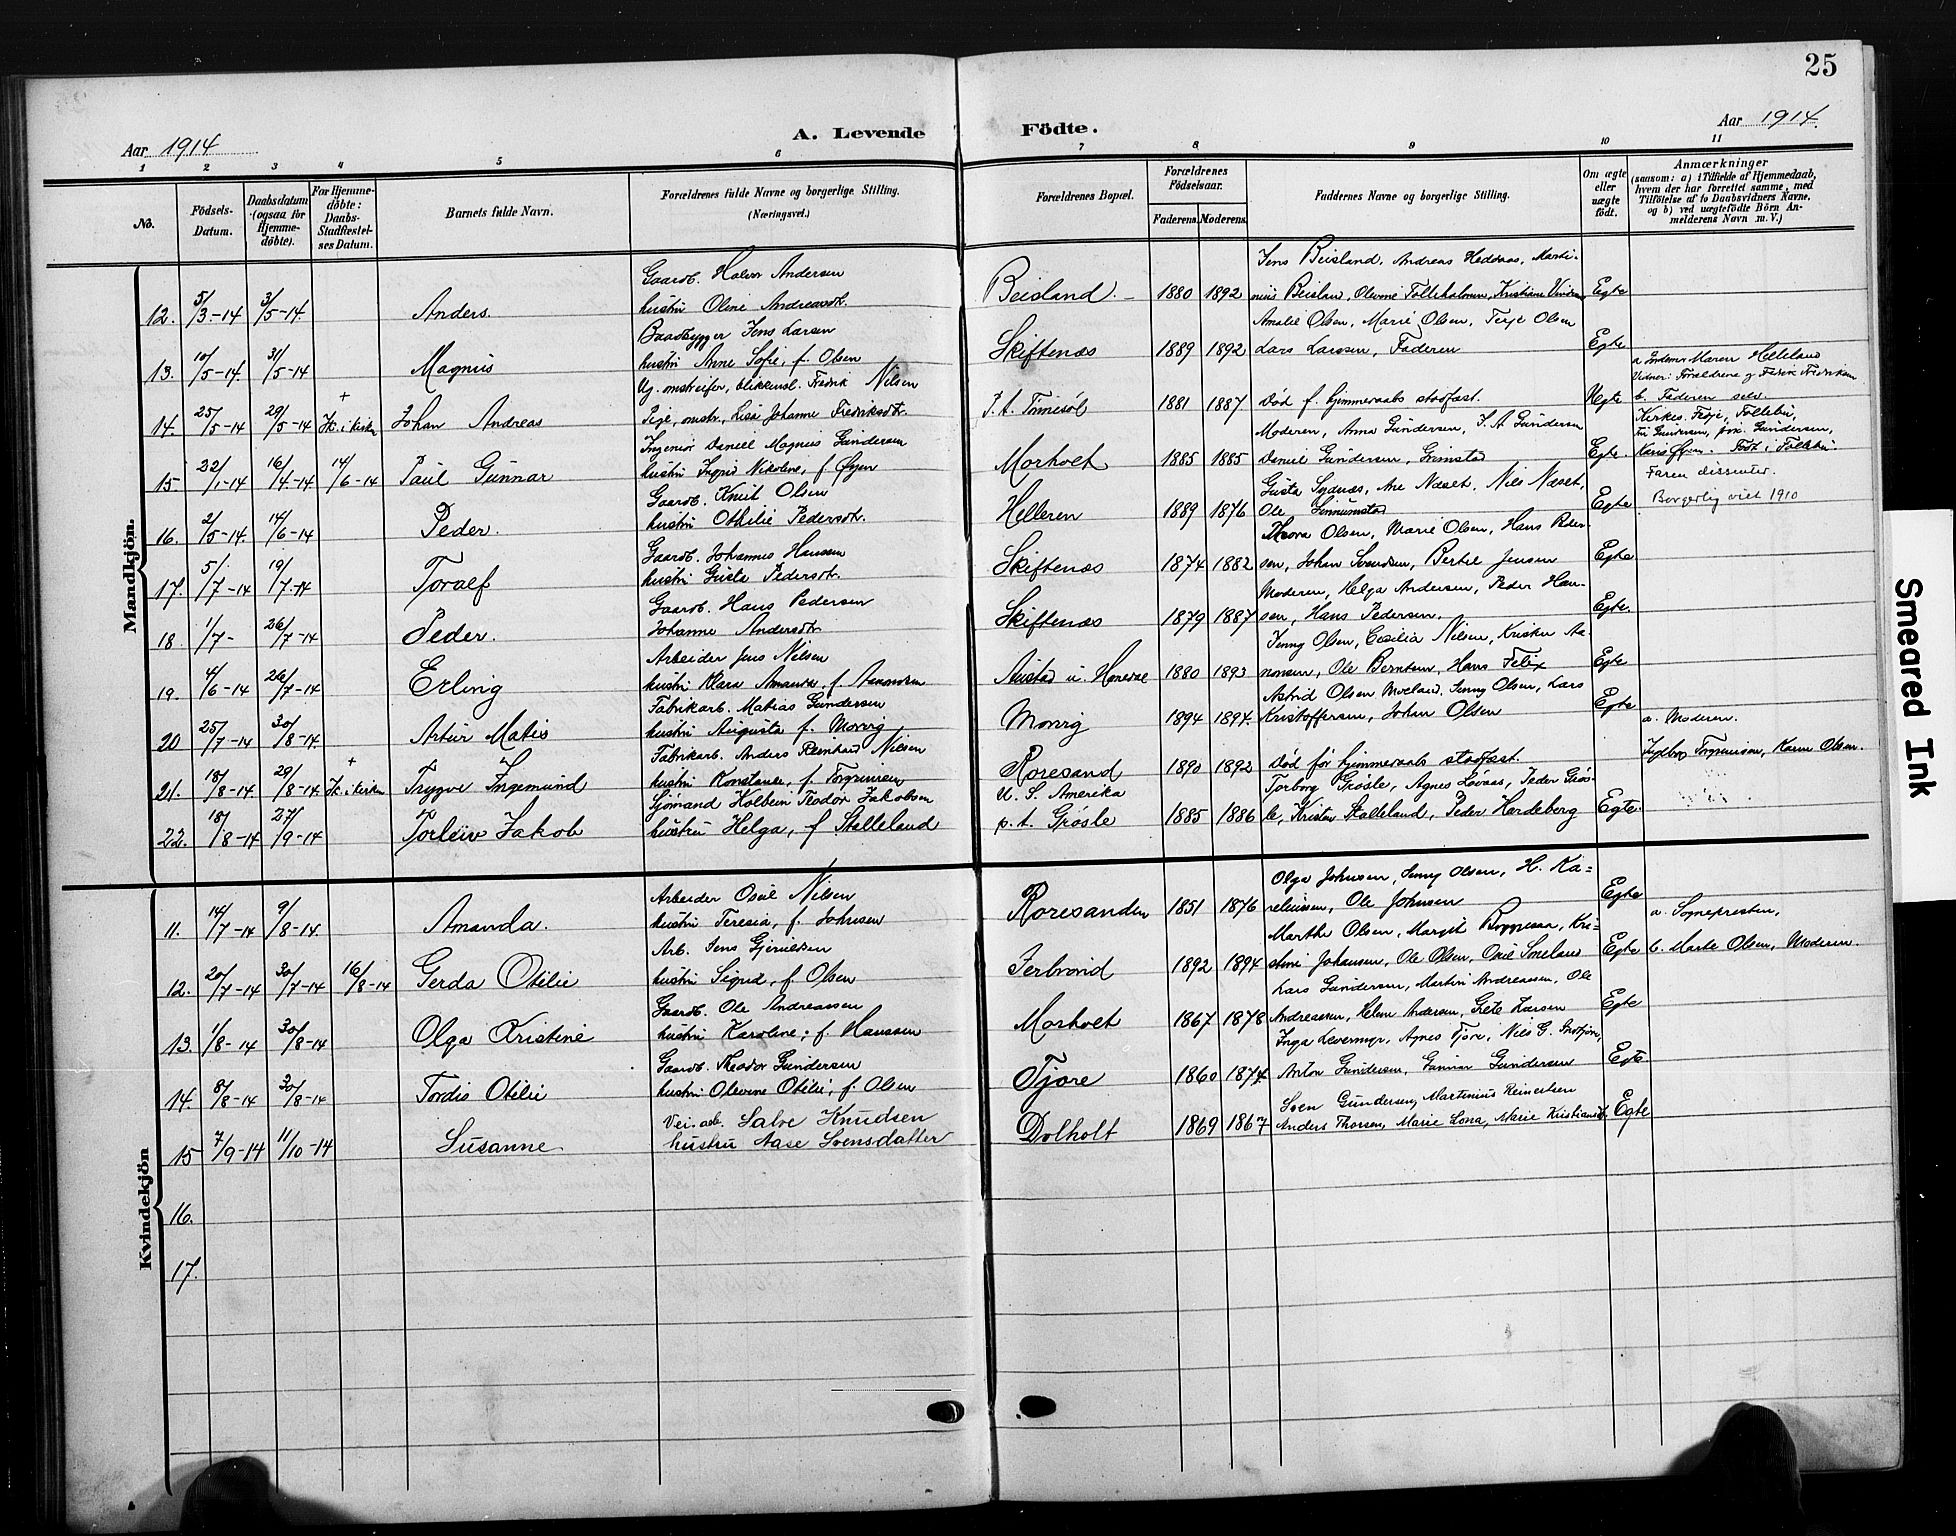 25
Aar 1914
A. Levende Födte.
Aar 1914.
1 2 3 4 5 6 7 8 9 10 11
No.
Födsels-Datum.
Daabsdatum (ogsaa for Hjemme-döbte).
For Hjemme-döbte: Daabs-Stadfæstel-ses Datum.
Barnets fulde Navn.
Forældrenes fulde Navne og borgerlige Stilling.
(Næringsvei.)
Forældrenes Bopæl.
Forældrenes Födselsaar.
Faderens. Moderens.
Faddernes Navne og borgerlig Stilling.
Om ægte eller uægte födt.
Anmærkninger
(saasom: a) i Tilfælde af Hjemmedaab,
hvem der har forrettet samme, med
Tilföielse af to Daabsvidners Navne,
og b) ved uægtefödte Börn An-
melderens Navn m. V.)
Mandkjön.
Gaardb. Halvor Andersen
Jens Beisland, Andreas Heddaas, Marti-
12. 5/3.-14 3/5-14. Anders. hustru Oline Andreasdt. Beisland. 1880 1892 nius Beisland, Olevine Tolleholmen, Kristiane Egte
Baadbygger Jens Larsen
Amalie Olsen, Marie Olsen, Terje Olsen
13. 10/5-14. 31/5-14 Magnus hustru Anne Sofie, f. Olsen Skiftenæs 1889 1892 Lars Larssen, Faderen Egte
a Maren Helleland
Ug. omstreifer, blikkensl. Fredrik Nilsen
Vidner: Forældrene og Fredrik Fredriksen
14. 25/5-14 29/5-14 + Johan Andreas Pige, omstr., Lisa Johanne Fredriksdt. P.t. 1881 1887 Død f. hjemmedaabs stadfæst. Uegte b. Faderen selv.
Ingeniør Daniel Magnus Gundersen
Moderen, Anna Gundersen, J. A Gundersen
15. 22/1-14 16/4-14 14/6-14 Paul Gunnar hustru Ingrid Nikoline, f. Øyen Morholt 1885 1885 Daniel Gundersen, Grimstad Egte.
Faren dissenter.
Gaardb. Knut Olsen
Borgerlig viet 1910
16. 2/5-14. 14/6-14 Peder. hustru Othilie Pedersdt. Helleren 1889 1876 Ole Egte
Gaardb. Johannes Hansen
Thora Olsen, Marie Olsen, Hans Peder-
17. 5/7-14 19/7-14 Toralf hustru Gusta Pedersdt. Skiftenæs 1874 1882 sen, Johan Svendsen, Bertel Jensen Egte
Gaardb. Hans Pedersen
Moderen, Helga Andersen, Peder Han-
18. 1/7- 26/7-14 Peder. Johanne Andersdt. Skiftenæs 1879 1887 sen, Hans Pedersen. Egte.
Arbeider Jens Nilsen
Jenny Olsen, Cecilia Nilsen, Kristen Aa-
19. 4/6-14 26/7-14 Erling hustru Klara Amanda, f. Aanonsen 1880 1893 nonsen, Ole Berntsen, Hans Felix Egte
Fabrikarb. Matias Gundersen
Astrid Olsen Moeland, Jenny Olsen, Lars
20 25/7-14 30/8-14. Artur Matis hustru Augusta f. Morvig Morvig 1894 1894. Kristoffersen, Johan Olsen Egte
a. Moderen.
Fabrikarb. Anders Reinhard Nilsen
21. 18/8-14. 29/8-14 + Trygve Ingemund hustru Konstance, f. Torgrimsen Roresand 1890 1892 Død før hjemmedaabs stadfæst.
Torgrimsen, Karen Olsen.
Sjømand Kolbein Teodor Jakobsen
U. S. Amerika
Torborg Grøsle, Agnes Løvaas, Peder Grøs-
22. 18/8-14 27/9-14 Torleiv Jakob hustru Helga, f Stalleland p.t. Grøsle 1885 1886 le, Kristen Stalleland, Peder Hardeberg Egte.
Kvindekjön
Arbeider Osuld Nilsen
Olga Johnsen, Jenny Olsen, H. Ka-
11. 14/7-14 9/8-14. Amanda. hustru Teresia, f. Johnsen Roresanden 1851 1876 reliussen, Ole Johnsen Egte
a. Sognepresten,
Arb. Jens Gjeruldsen
Marthe Olsen, Margit Kri-
12. 20/7-14 30/7-14 16/8-14 Gerda Otilie hustru Sigrid, f. Olsen 1892 1894 stine Johansen, Ole Olsen, Osuld Smeland Egte b. Marte Olsen, Moderen
Gaardb. Ole Andreassen
Lars Gundersen, Martin Andreassen, Ole
13. 1/8-14 30/8-14 Olga Kristine hustru Karoline; f. Hanssen Morholt 1867 1878 Andreassen, Helene Andersen, Grete Larsen Egte
Gaardb. Theodor Gundersen
Inga Levermyr, Agnes Tjore, Niels G.
14. 8/8-14 30/8-14 Tordis Otilie hustru Olevine Otilie, f. Olsen Tjore 1860 1874 Anton Gundersen, Gunnar Gundersen Egte
Vei.arb. Salve Knudsen
Sven Gundersen, Martinius Reinertsen
15 7/9-14 11/10-14 Susanne hustru Aase Svensdatter Dolholt 1869 1867 Anders Thorsen, Marie Lona, Marie Egte
16.
17.
Smeared Ink